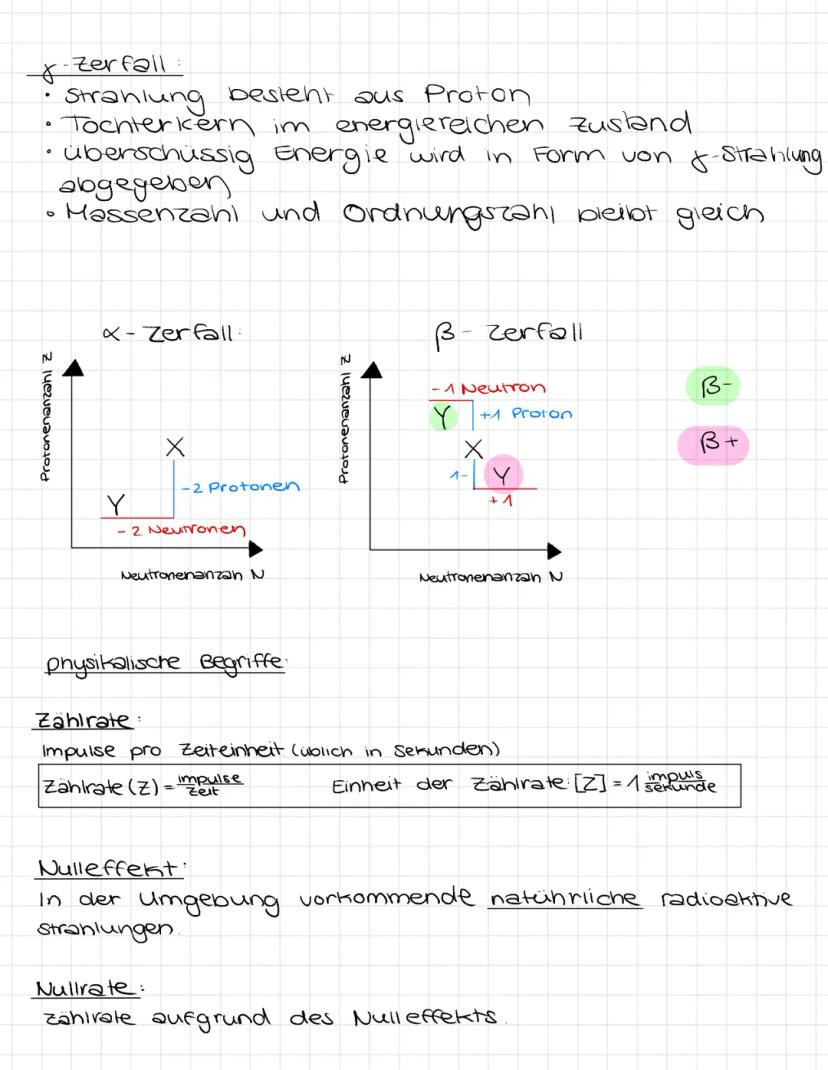 γ-Zerfall:
• Strahlung besteht aus Proton
• Tochterkern im energiereichen Zustand
• überschüssig Energie wird in Form von γ-Strahlung
abgegeben
• Massenzahl und Ordnungszahl bleibt gleich
α-Zerfall:
β-Zerfall
Protonenanzahl Z
X
-2 Protonen
Y
-2 Neutronen
Neutronenanzah N
Protonenanzahl Z
-1 Neutron
Y +1 Proton
X
1- Y
+1
Neutronenanzah N
β-
β+
physikalische Begriffe:
Zählrate:
Impulse pro Zeiteinheit (üblich in Sekunden)
Zählrate (Z) = impulse/zeit Einheit der Zählrate: [Z] = 1 impuls/sekunde
Nulleffekt:
In der Umgebung vorkommende natührliche radioaktive
Strahlungen.
Nullrate:
Zählrate aufgrund des Nulleffekts.